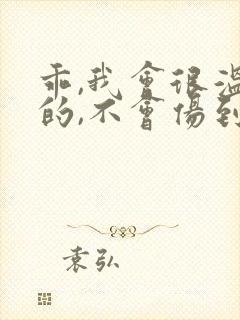 乖,我會很溫
的,不會傷到
袁弘